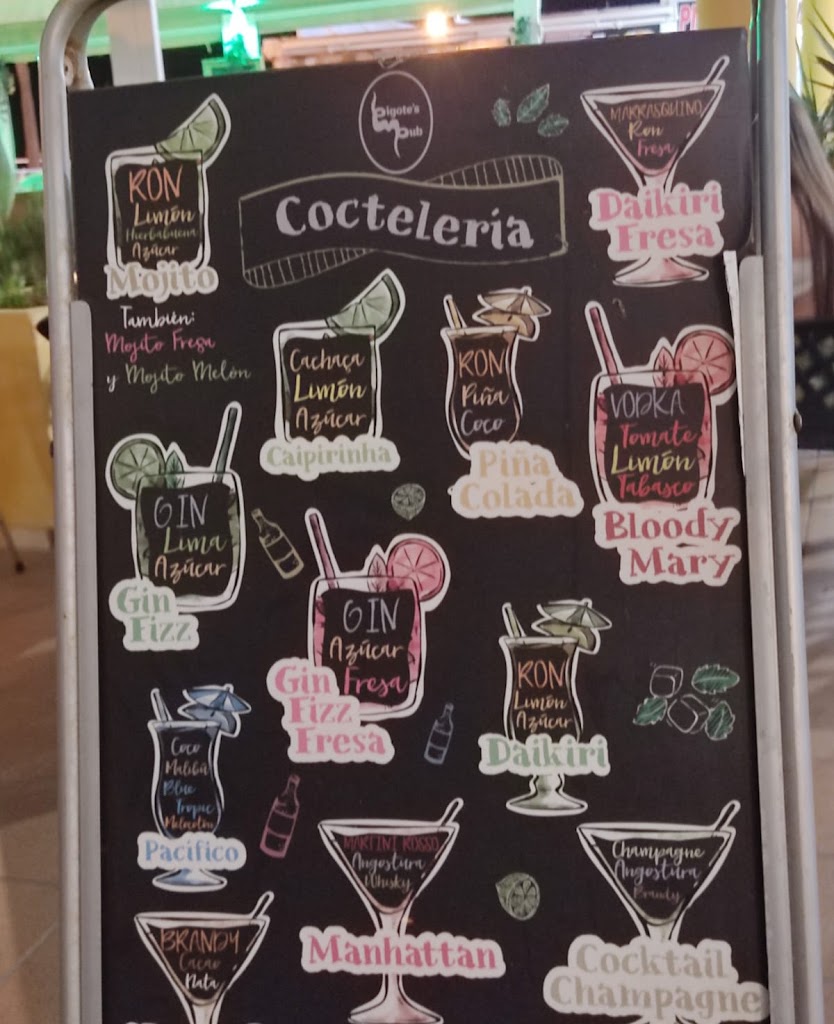 Bigote's
Pub
Coctelería
RON
Limón
Hierbabuena
Azúcar
Mojito
También:
Mojito Fresa
y Mojito Melón
MARRASQUINO
Ron
Fresa
Daikiri
Fresa
Cachaça
Limón
Azúcar
Caipirinha
RON
Piña
Coco
Piña
Colada
VODKA
Tomate
Limón
Tabasco
Bloody
Mary
GIN
Lima
Azúcar
Gin
Fizz
GIN
Azúcar
Fresa
Gin
Fizz
Fresa
RON
Limón
Azúcar
Daikiri
Coco
Malibú
Blue
Tropic
Melocotón
Pacífico
MARTINI ROSSO
Angostura
Whisky
Manhattan
Champagne
Angostura
Brandy
Cocktail
Champagne
BRANDY
Cacao
Nata